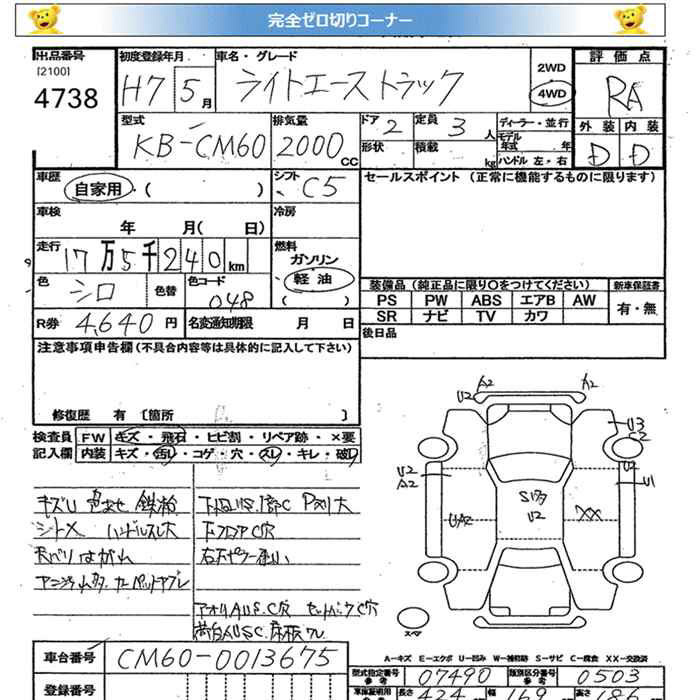 完全ゼロ切りコーナー
出品番号 初度登録年月 車名・グレード 評価点
[2100]
4738 H7 5月 ライトエーストラック 2WD 4WD RA
型式 排気量 ドア 定員 ディーラー・並行 外装 内装
KB-CM60 2000cc 2 3人 モデル年式 年 D D
形状 積載 kg ハンドル 左・右
車歴 シフト セールスポイント (正常に機能するものに限ります)
自家用・( ) C5
車検 冷房
年 月( 日)
走行 燃料
17万5千240km ガソリン
軽油
色 色替 色コード ( )
シロ 048
装備品 (純正品に限り○をつけてください) 新車保証書
PS PW ABS エアB AW 有・無
SR ナビ TV カワ
R券 4,640円 名変通知期限 月 日 後日品
注意事項申告欄 (不具合内容等は具体的に記入して下さい)
修復歴 有 〔箇所 〕
検査員 FW キズ・飛石・ヒビ割・リペア跡・×要
記入欄 内装 キズ・汚レ・コゲ・穴・スレ・キレ・破レ
キズU 色あせ
シトメ ハンドルスレ大
下フロアC穴
A2 A2
U2
U3
C2
U2 U2
A2 U1
S173
U2
UA2 XX
アオリAUSC穴
スペア
A-キズ E-エクボ U-凹み W-補修跡 S-サビ C-腐食 XX-交換済
車台番号 CM60-0013675
型式指定番号 07490 類別区分番号 0503
参考 参考
登録番号
車庫証明用 長さ 424 幅 169 高さ 186